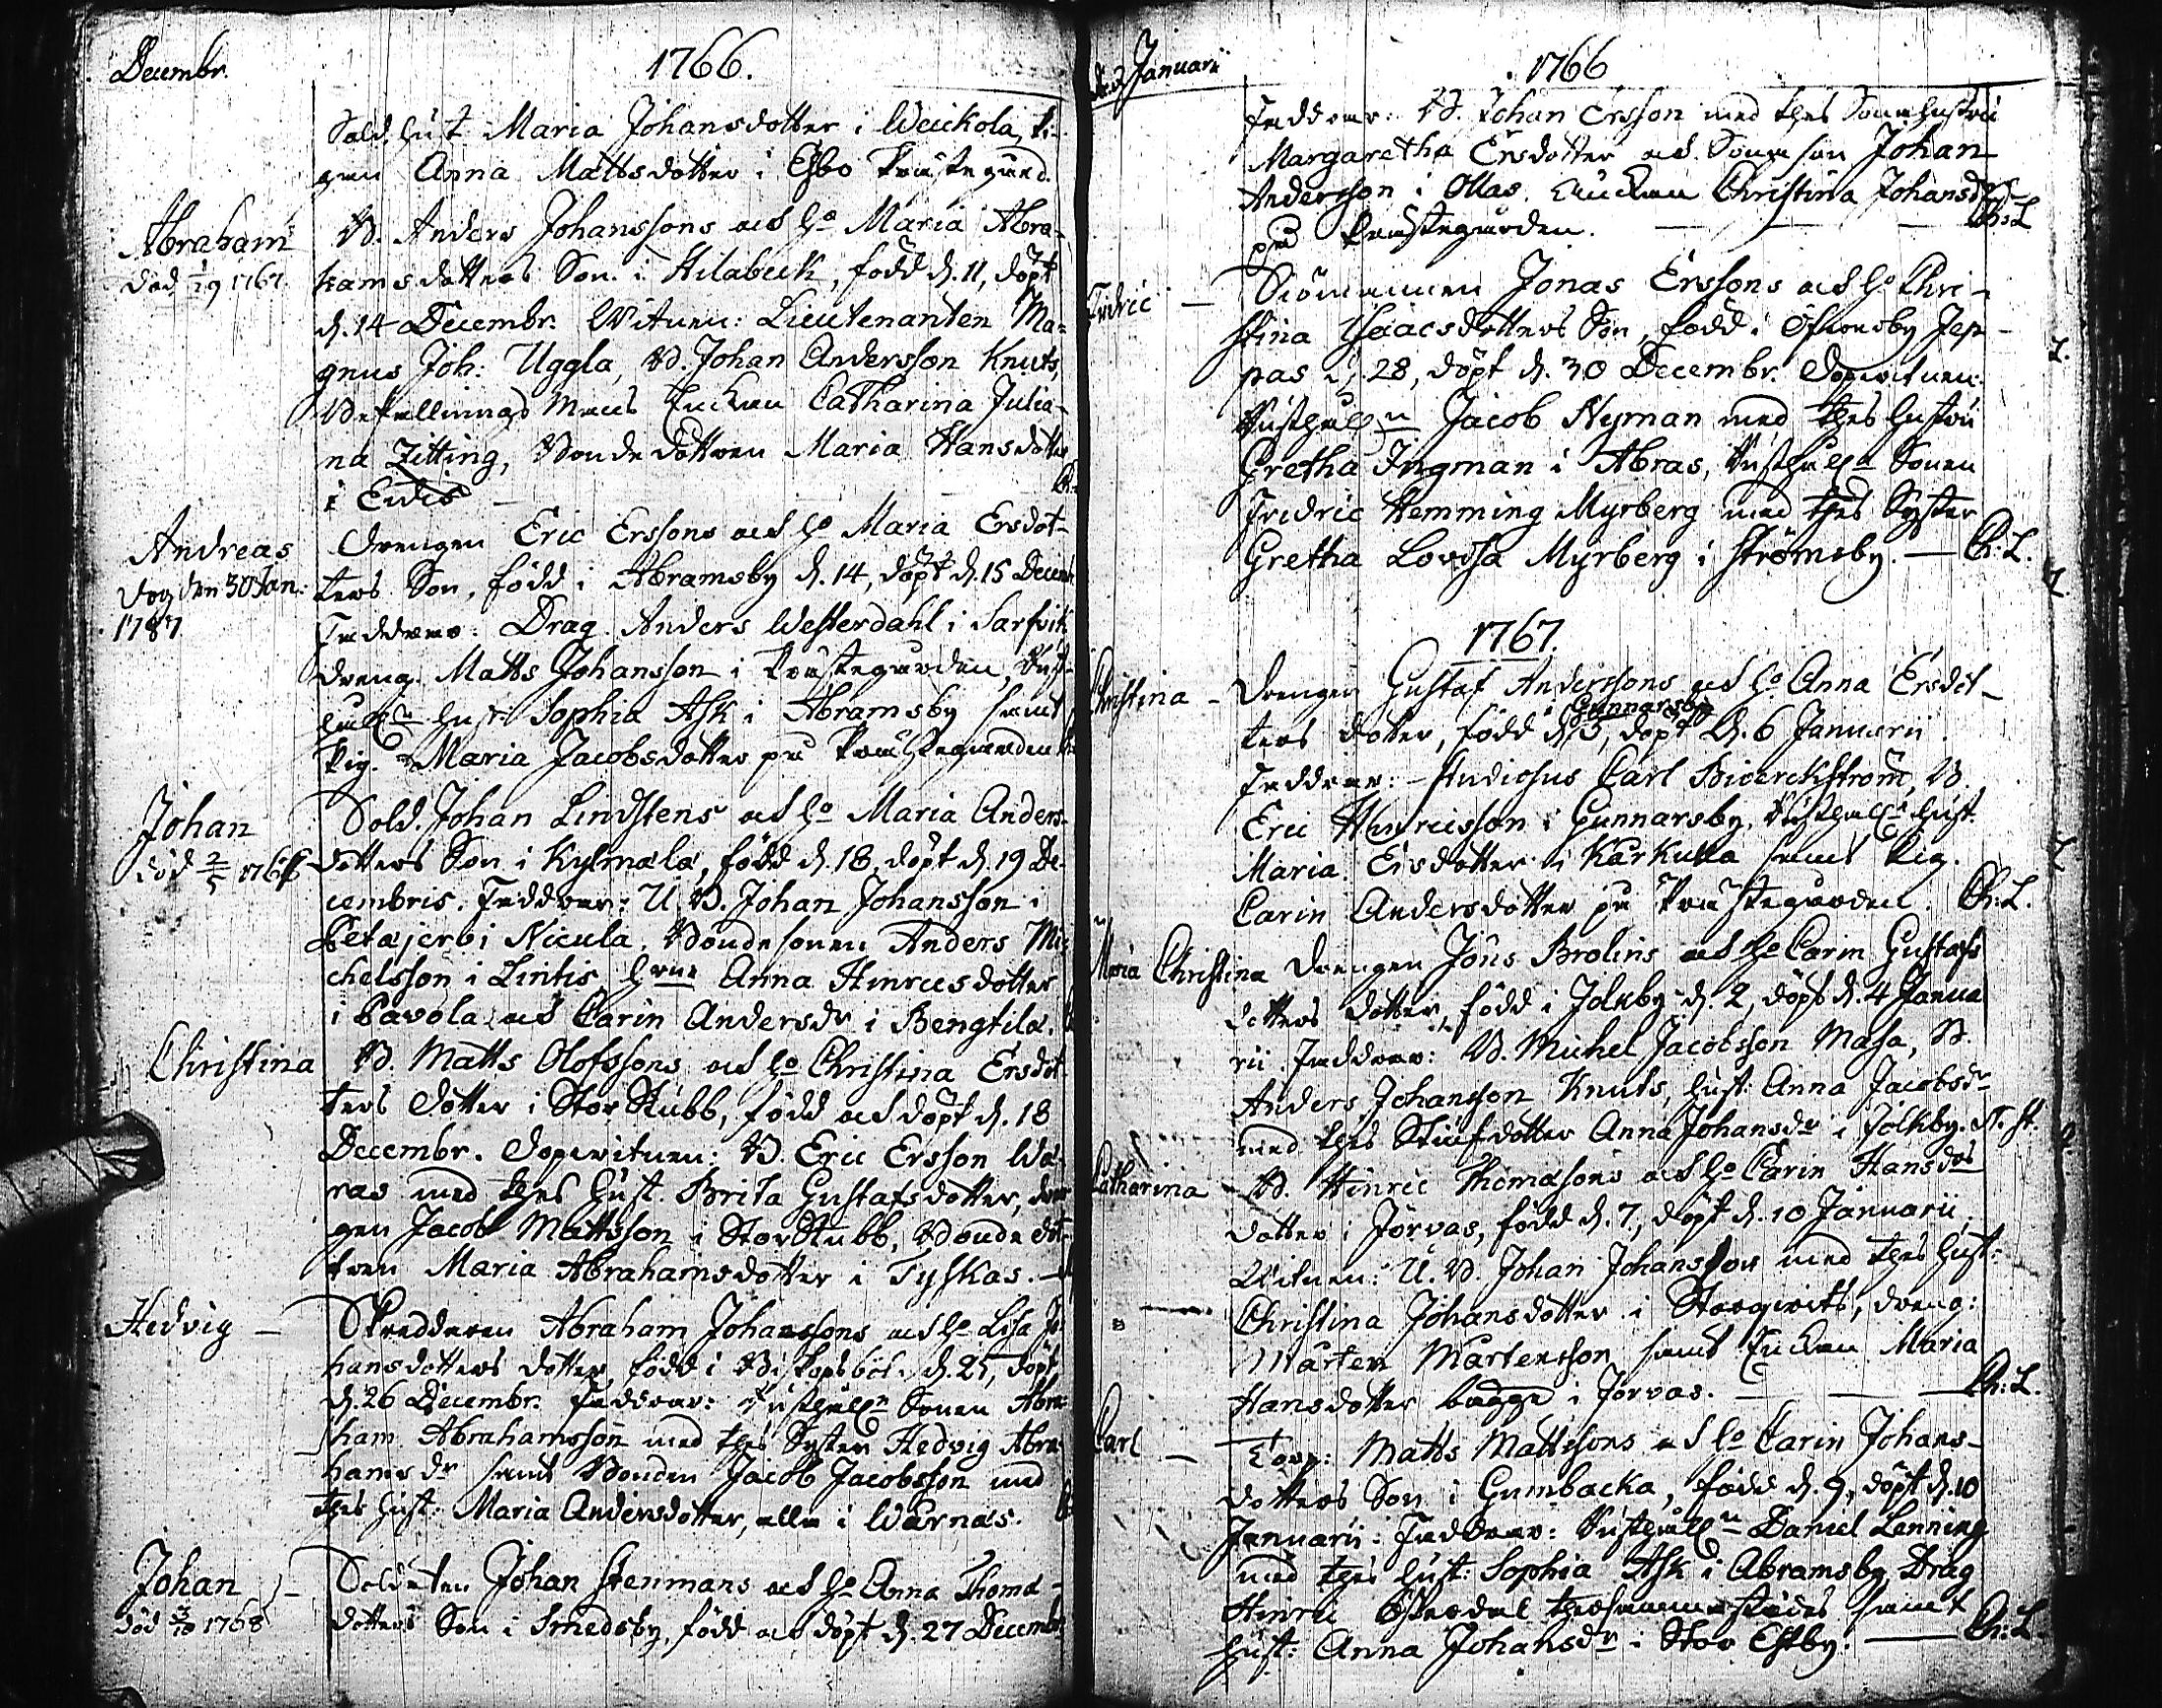 Decembr. 1766.
Sold. hust. Maria Johansdotter i Weickola, Pi-
gan Anna Mattsdotter i Esbo Prästegård.
Abraham
död 1/19 1767.
B. Anders Johanssons och ho Maria Abra-
hamsdotters Son i Kilabeck, född d. 11, döpt
d. 14 Decembr. Witnen: Lieutenanten Ma-
gnus Joh: Uggla, B. Johan Andersson Knuts,
Befallnings Mans Enckan Catharina Julia-
na Zitting, Bonde dottren Maria Hansdotter
i Eidis
Andreas
Dog den 30 Jan:
1787.
Drengen Eric Erssons och ho Maria Ersdot-
ters Son, född i Abramsby d. 14, döpt d. 15 Decembr.
Faddrar: Drag. Anders Westerdahl i Sarfvik
dreng. Matts Johansson i Prästegården, Rust-
hålln hust. Sophia Ask i Abramsby samt
Pig. Maria Jacobsdotter på Prästegården
Johan
död 2/5 1766
Sold. Johan Lindstens och ho Maria Anders-
dotters Son i Kylmala, född d. 18, döpt d. 19 De-
cembris. Faddrar: U. B. Johan Johansson i
Petajerbi Nicula, Bondesonen Anders Mi-
chelsson i Lintis, Anna Hinricsdotter
i Pavola och Carin Andersdr i Bengtila.
Christina
B. Matts Olofssons och ho Christina Ersdot-
ters dotter i Stor Stubb, född och döpt d. 18
Decembr. Dopwitnen: B. Eric Ersson Wa-
ras med thes hust. Brita Gustafsdotter, dren-
gen Jacob Mattsson i Stor Stubb, Bonde dot-
tren Maria Abrahamsdotter i Tyskas. —
Hedvig —
Skreddaren Abraham Johanssons och ho Lisa Jo-
hansdotters dotter, född i Biskopsböl d. 25, döpt
d. 26 Decembr. Faddrar: Rusthålln Sonen Abra-
ham Abrahamsson med thes Syster Hedvig Abra-
hamsdr samt Bonden Jacob Jacobsson med
thes hust: Maria Andersdotter, alla i Wårnas.
Johan —
död 3/10 1768
Soldaten Johan Stenmans och ho Anna Thoma-
dotters Son i Smedsby, född och döpt d. 27 Decembr.
Januarii 1766
Faddrar: B. Johan Ersson med thes Sonahustru
Margaretha Ersdotter och Sonason Johan
Andersson i Ollas. Enckan Christina Johansdr
på Prästegården. — — — Ch: L
Fredric —
Siömannen Jonas Erssons och ho Chri-
stina Isaacsdotters Son, född i Österby Jep-
pas d. 28, döpt d. 30 Decembr. Dopwitnen:
Rusthålln Jacob Nyman med thes hustru
Gretha Ingman i Abras, Rusthålln Sonen
Fredric Hemming Myrberg med thes Syster
Gretha Lovisa Myrberg i Strömsby. — Ch: L.
1767.
Christina —
Drengen Gustaf Anderssons och ho Anna Ersdot-
Gunnarsby
ters dotter, född d. 5, döpt d. 6 Januarii.
Faddrar: Studiosus Carl Bioerckström, B.
Eric Hinricsson i Gunnarsby, Rusthålln hust.
Maria Ersdotter i Karkulla samt Pig.
Carin Andersdotter på Prästegården. Ch: L.
Maria Christina
Drengen Jöns Brolins och ho Carin Gustafs
dotters dotter, född i Jolkby d. 2, döpt d. 4 Janua
rii. Faddrar: B. Michel Jacobsson Masa, B.
Anders Johansson Knuts, hust. Anna Jacobsdr
med thes Stiufdotter Anna Johansdr i Jolkby.
Catharina —
B. Hinric Thomasons och ho Carin Hansdrs
dotter i Jorvas, född d. 7, döpt d. 10 Januarii.
Witnen: U. B. Johan Johansson med thes hust:
Christina Johansdotter i, dreng:
Mårten Mårtensson samt Enckan Maria
Hansdotter bägge i Jorvas. — — Ch: L.
Carl —
Torp: Matts Mattssons och ho Carin Johans-
dotters Son i Gumbacka, född d. 9, döpt d. 10
Januarii: Faddrar: Rusthålln Daniel Lenning
med thes hust: Sophia Ask i Abramsby, Drag
Hinric Österdal thersammastädes samt
hust: Anna Johansdr i Stor Estby. — Ch: L.